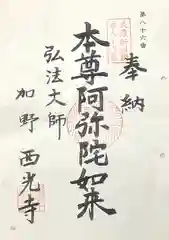 第八十六番
奉納
本尊阿弥陀如来
弘法大師
加野 西光寺